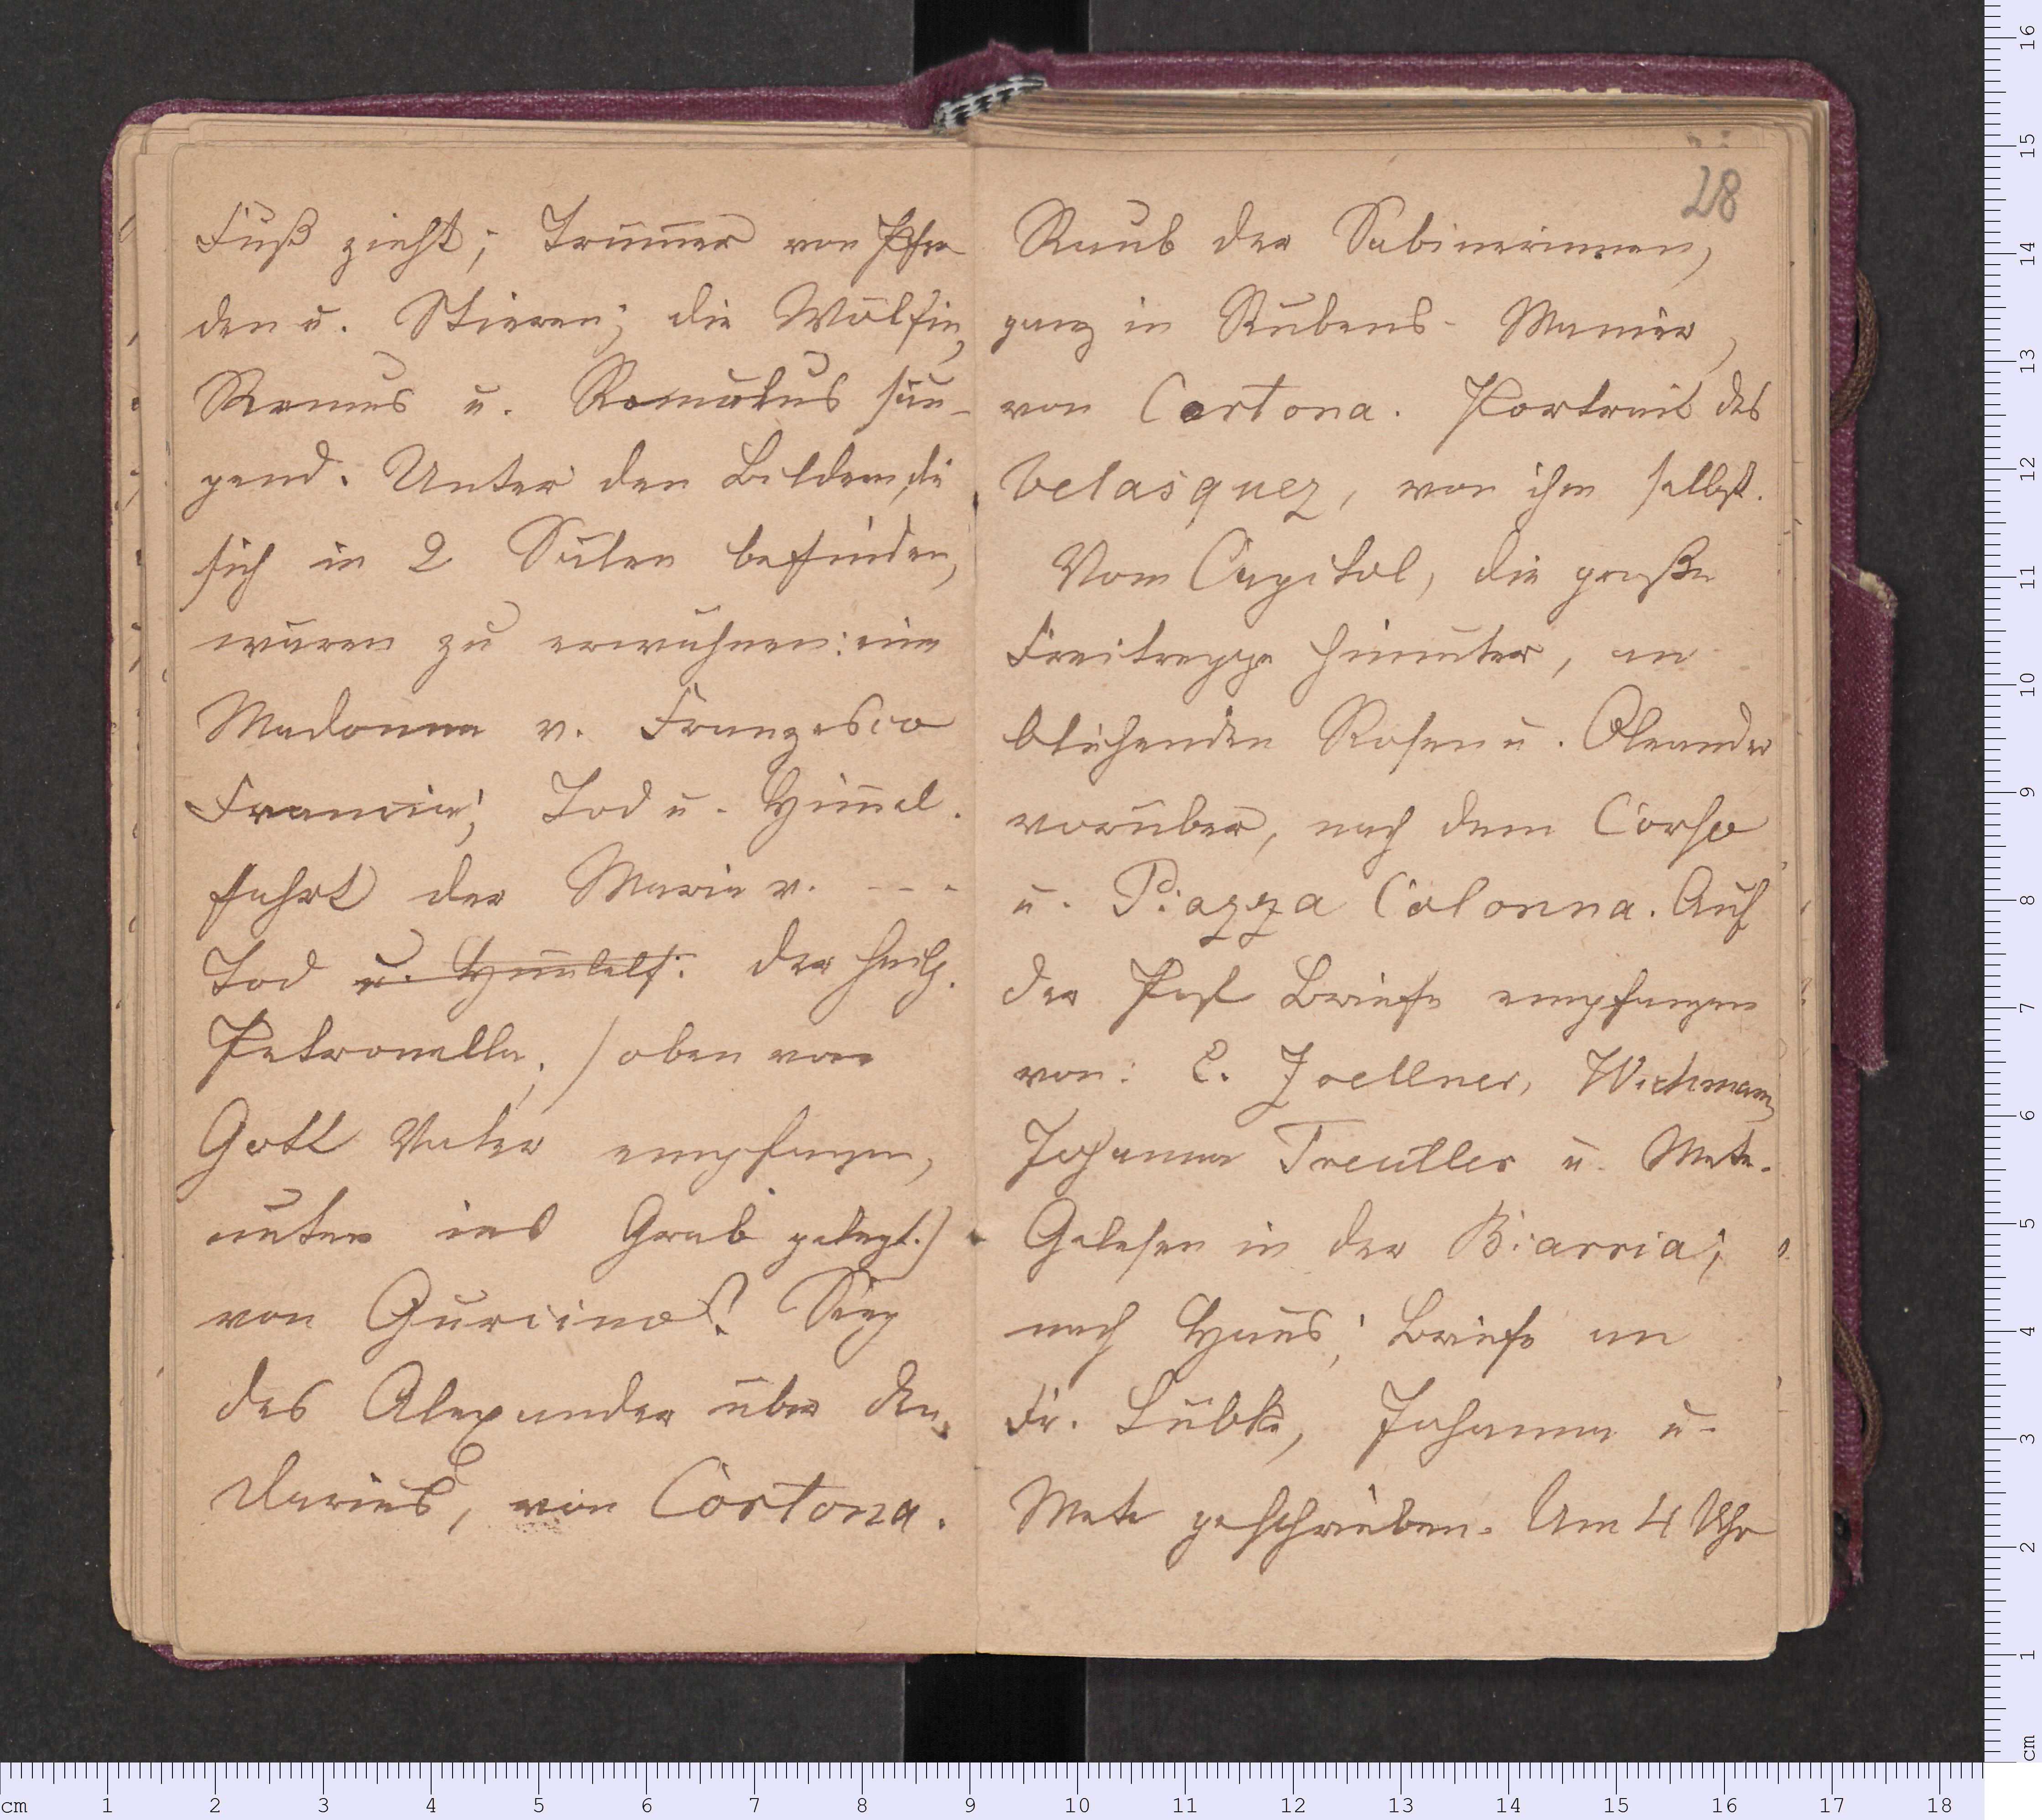 Fuß zieht; Trümmer von Pfer
den u. Stieren; die Wölfin,
Remus u. Romulus säu-
gend. Unter den Bildern, die
sich in 2 Sälen befinden,
waren zu erwähnen: eine
Madonna v. Franzesco
Francia; Tod u. Himmel.
fahrt der Maria v. ---
Tod u. Himelf: der heilg.
Petronella; /oben von
Gott Vater empfangen,
unten ins Grab gelegt.)
von Gurcino? Sieg
des Alexander über den
Darius, von Cortona.
28
Raub der Sabinerinnen,
ganz in Rubens- Manier,
von Cortona. Portrait des
Velasquez, von ihm selbst.
Vom Capitol, die große
Freitreppe hinunter, an
blühenden Rosen u. Oleander
vorüber, nach dem Corso
u. Piazza Colonna. Auf
der Post Briefe empfangen
von: E. Zoellner, Wichmann,
Johanna Treutler u. Mete.
Gelesen in der Birarria;
nach Haus; Briefe an
Fr. Lübke, Johanna u.
Mete geschrieben. Um 4 Uhr